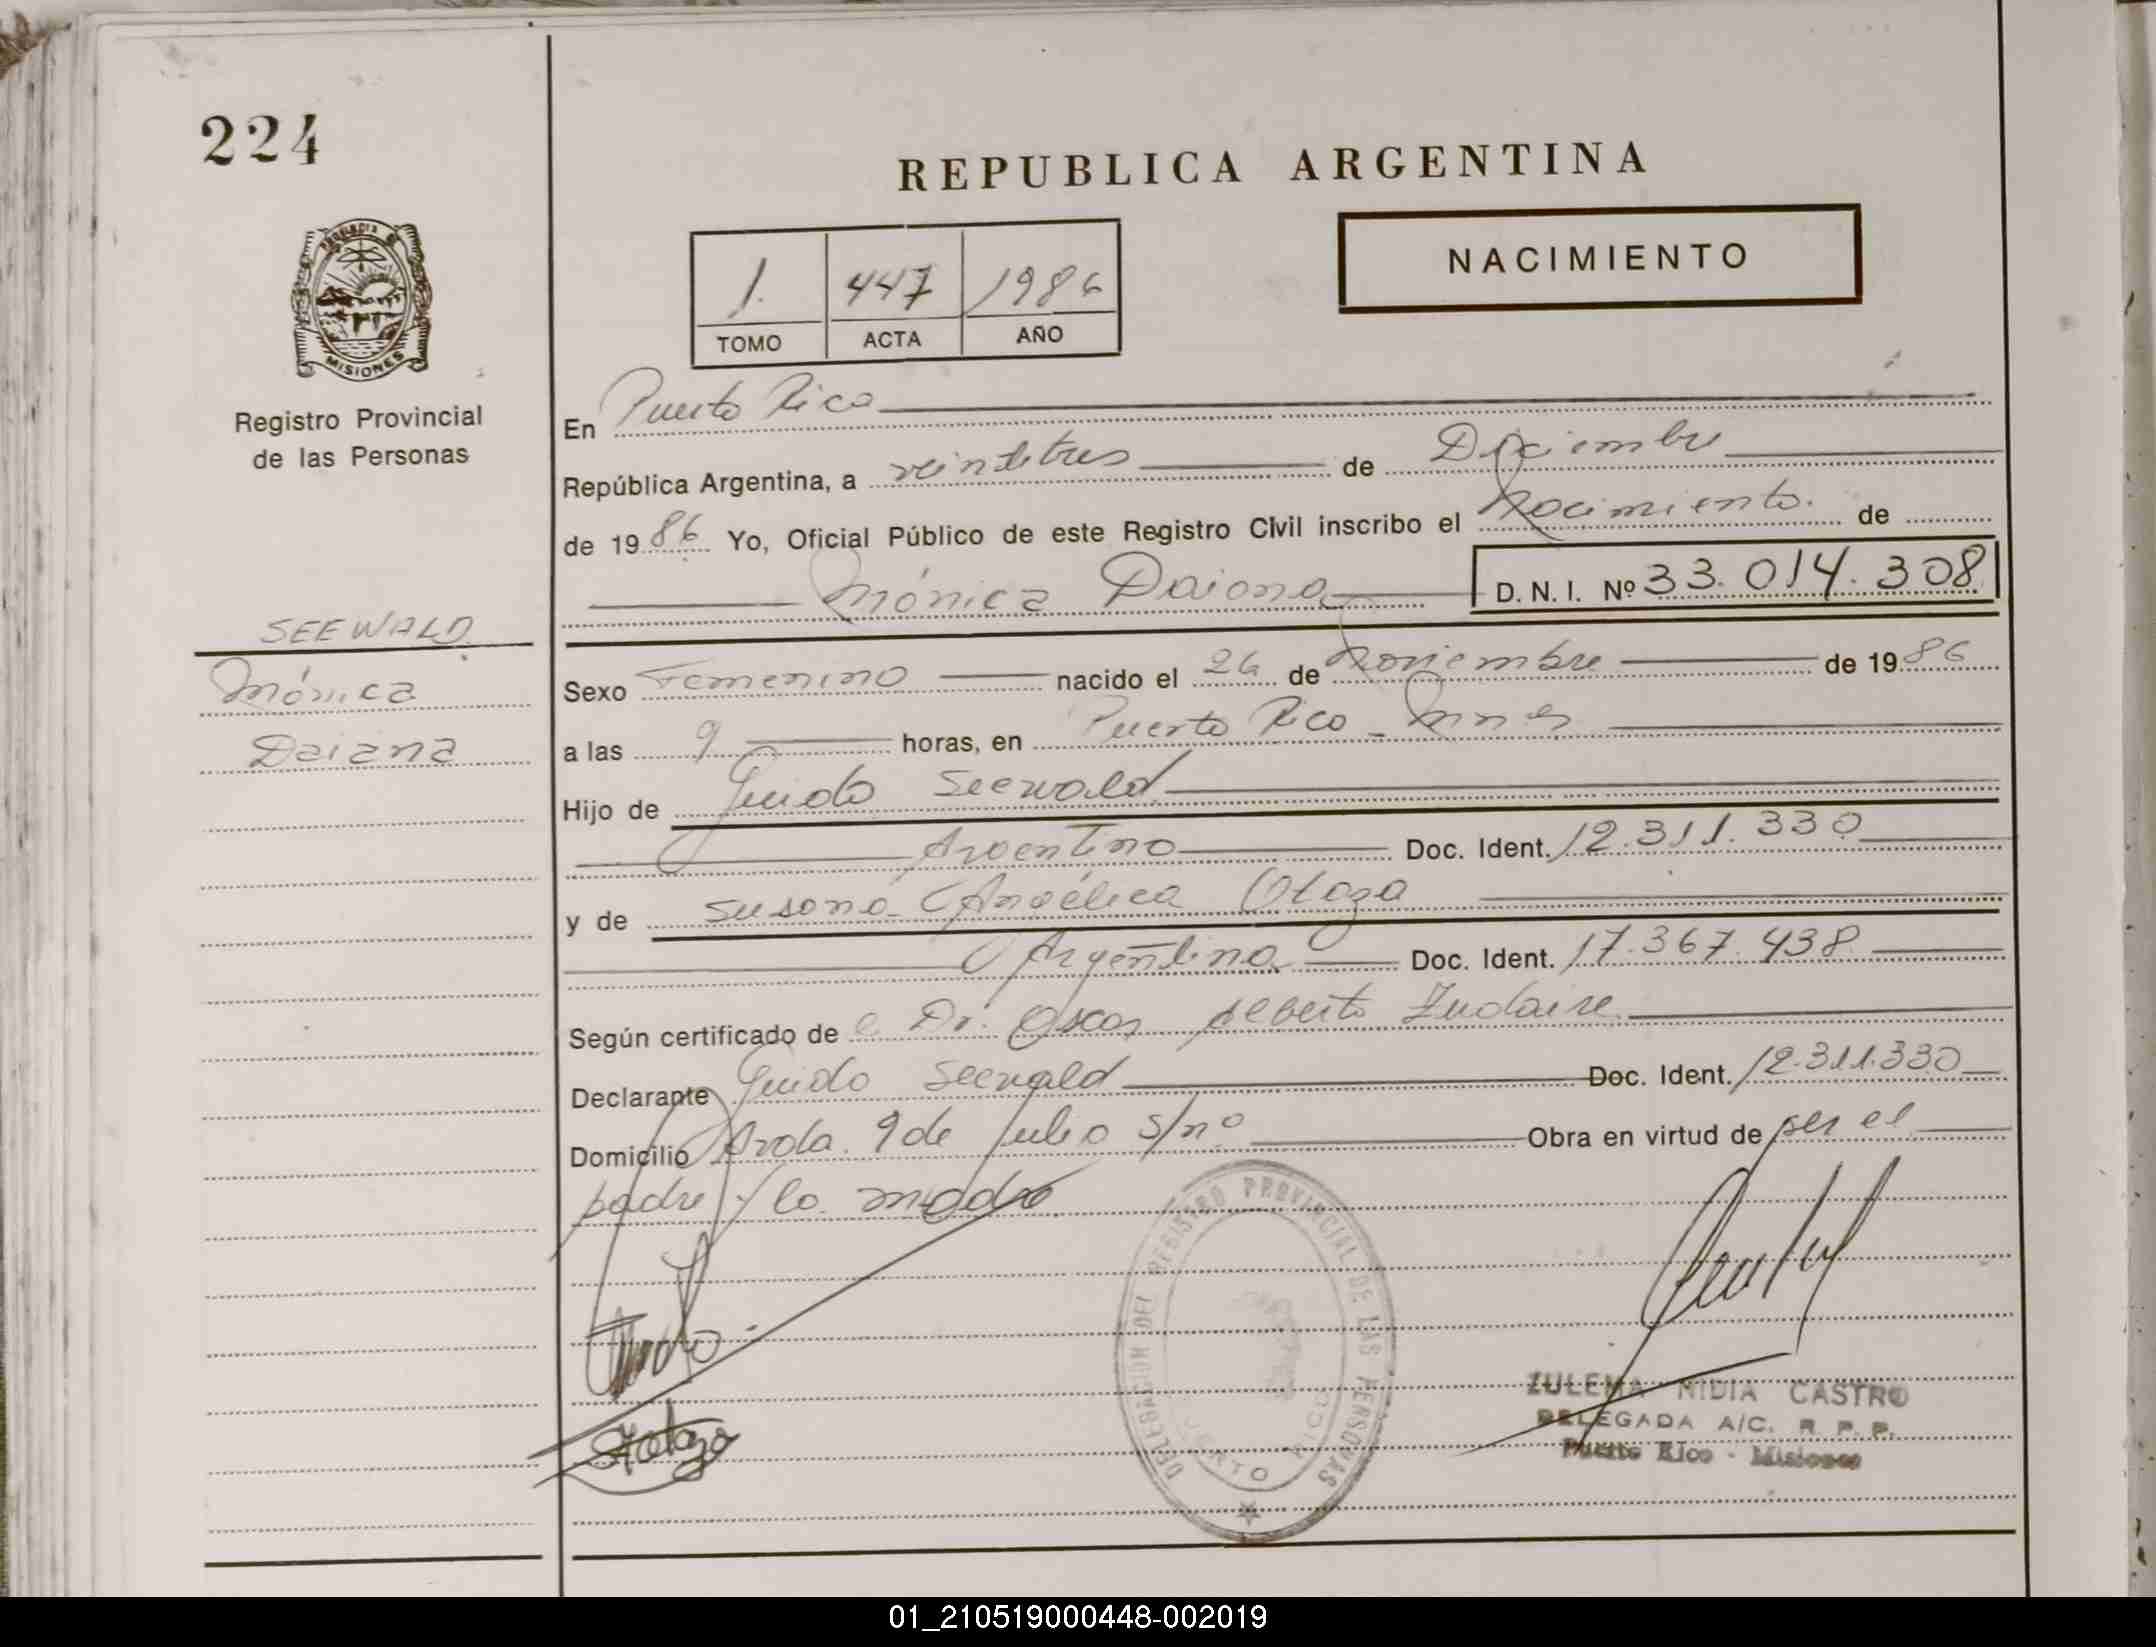 224
REPUBLICA ARGENTINA
NACIMIENTO
1. 447 1986
TOMO ACTA AÑO
PROVINCIA DE
MISIONES
Registro Provincial
de las Personas
SEEWALD
Mónica
Daiana
En Puerto Rico
República Argentina, a veintitres de Diciembre
de 1986 Yo, Oficial Público de este Registro Civil inscribo el Nacimiento. de
Mónica Daiana D. N. I. Nº 33.014.308
Sexo Femenino nacido el 26 de Noviembre de 1986
a las 9 horas, en Puerto Rico - Mnes
Hijo de Guido Seewald
Argentino Doc. Ident. 12.311.330
y de Susana Angélica Olaza
Argentina Doc. Ident. 17.367.438
Según certificado de Dr. Oscar Alberto Zudaire
Declarante Guido Seewald Doc. Ident. 12.311.330
Domicilio Avda. 9 de Julio s/nº Obra en virtud de ser el
padre y la madre
DELEGACION DEL REGISTRO PROVINCIAL DE LAS PERSONAS
PUERTO RICO
ZULEMA NIDIA CASTRO
DELEGADA A/C. R. P. P.
Puerto Rico - Misiones
01_210519000448-002019